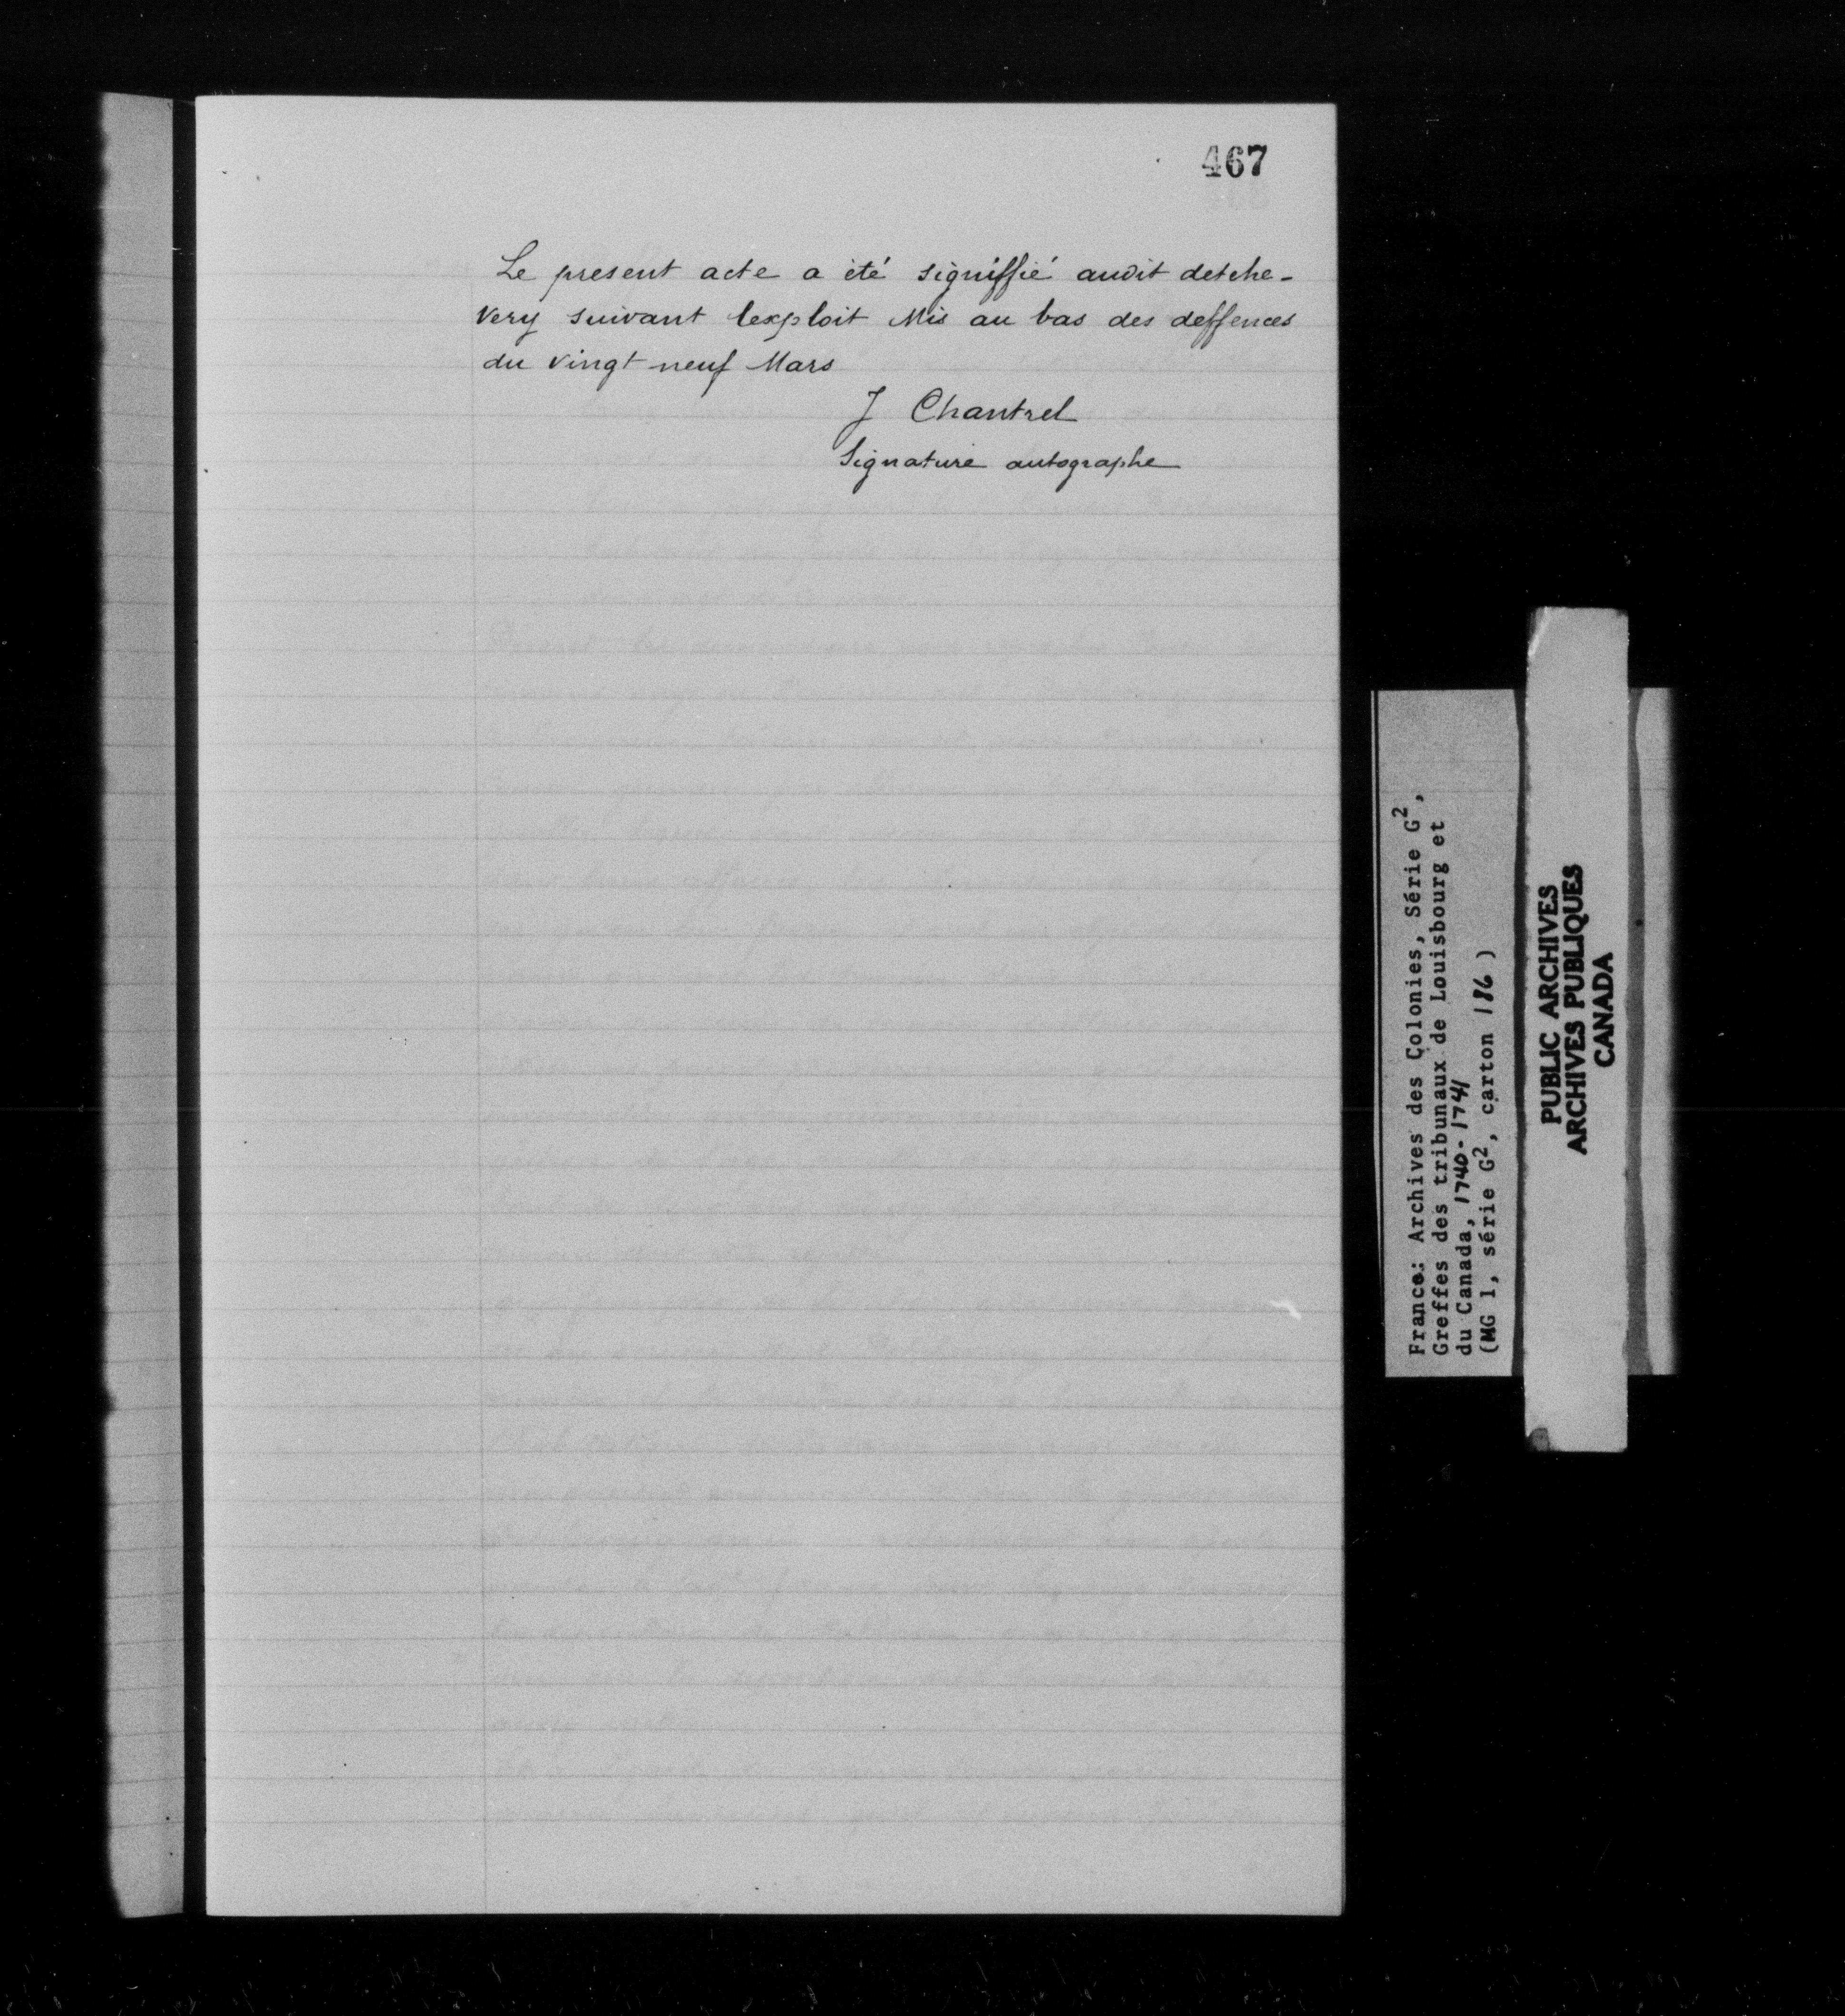 467
Le present acte a été signiffié audit detche-
very suivant lexploit Mis au bas des deffences
du vingt neuf Mars
J Chantrel
Signature autographe
France: Archives des Colonies, Série G²,
Greffes des tribunaux de Louisbourg et
du Canada, 1740-1741
(MG 1, série G², carton 186 )
PUBLIC ARCHIVES
ARCHIVES PUBLIQUES
CANADA